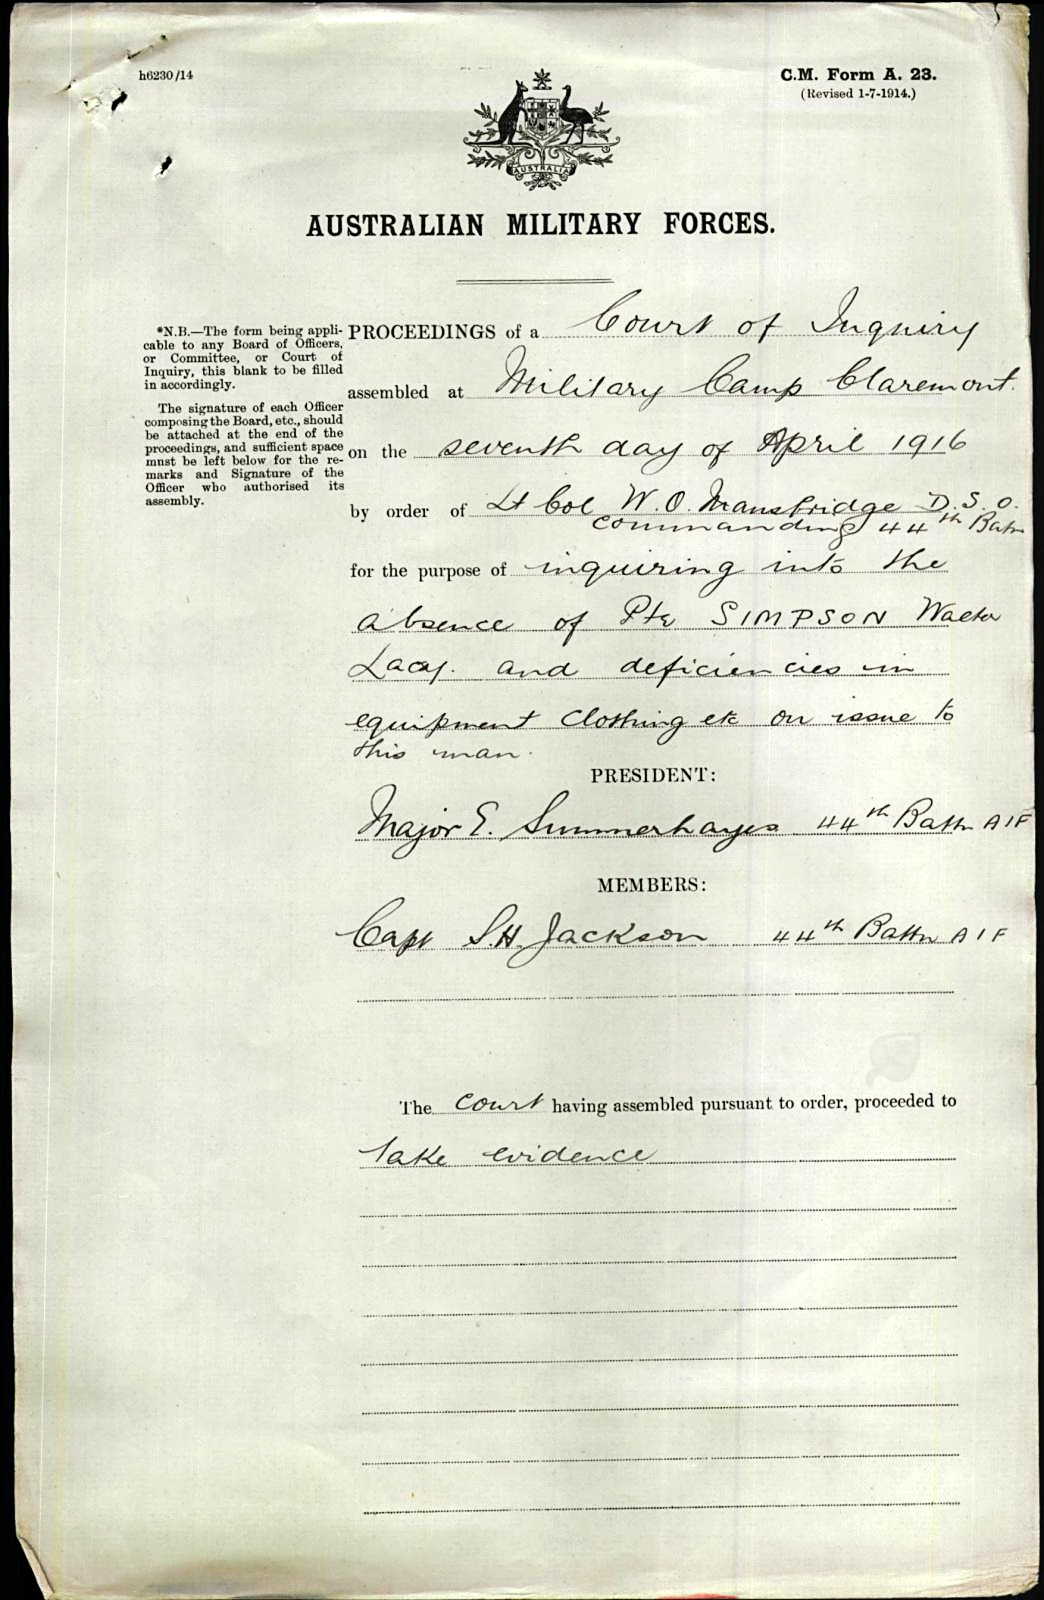 h6230/14
C.M. Form A. 23.
(Revised 1-7-1914.)
AUSTRALIA
AUSTRALIAN MILITARY FORCES.
*N.B.—The form being appli-
cable to any Board of Officers,
or Committee, or Court of
Inquiry, this blank to be filled
in accordingly.
The signature of each Officer
composing the Board, etc., should
be attached at the end of the
proceedings, and sufficient space
must be left below for the re-
marks and Signature of the
Officer who authorised its
assembly.
PROCEEDINGS of a Court of Inquiry
assembled at Military Camp Claremont.
on the seventh day of April 1916
by order of Lt Col W. O. Mansbridge D. S. O.
commanding 44th Battn
for the purpose of inquiring into the
absence of Pte SIMPSON Walter
Lacy. and deficiencies in
equipment Clothing etc on issue to
this man.
PRESIDENT:
Major E. Summerhayes 44th Battn AIF
MEMBERS:
Capt S.H. Jackson 44th Battn AIF
The court having assembled pursuant to order, proceeded to
take evidence